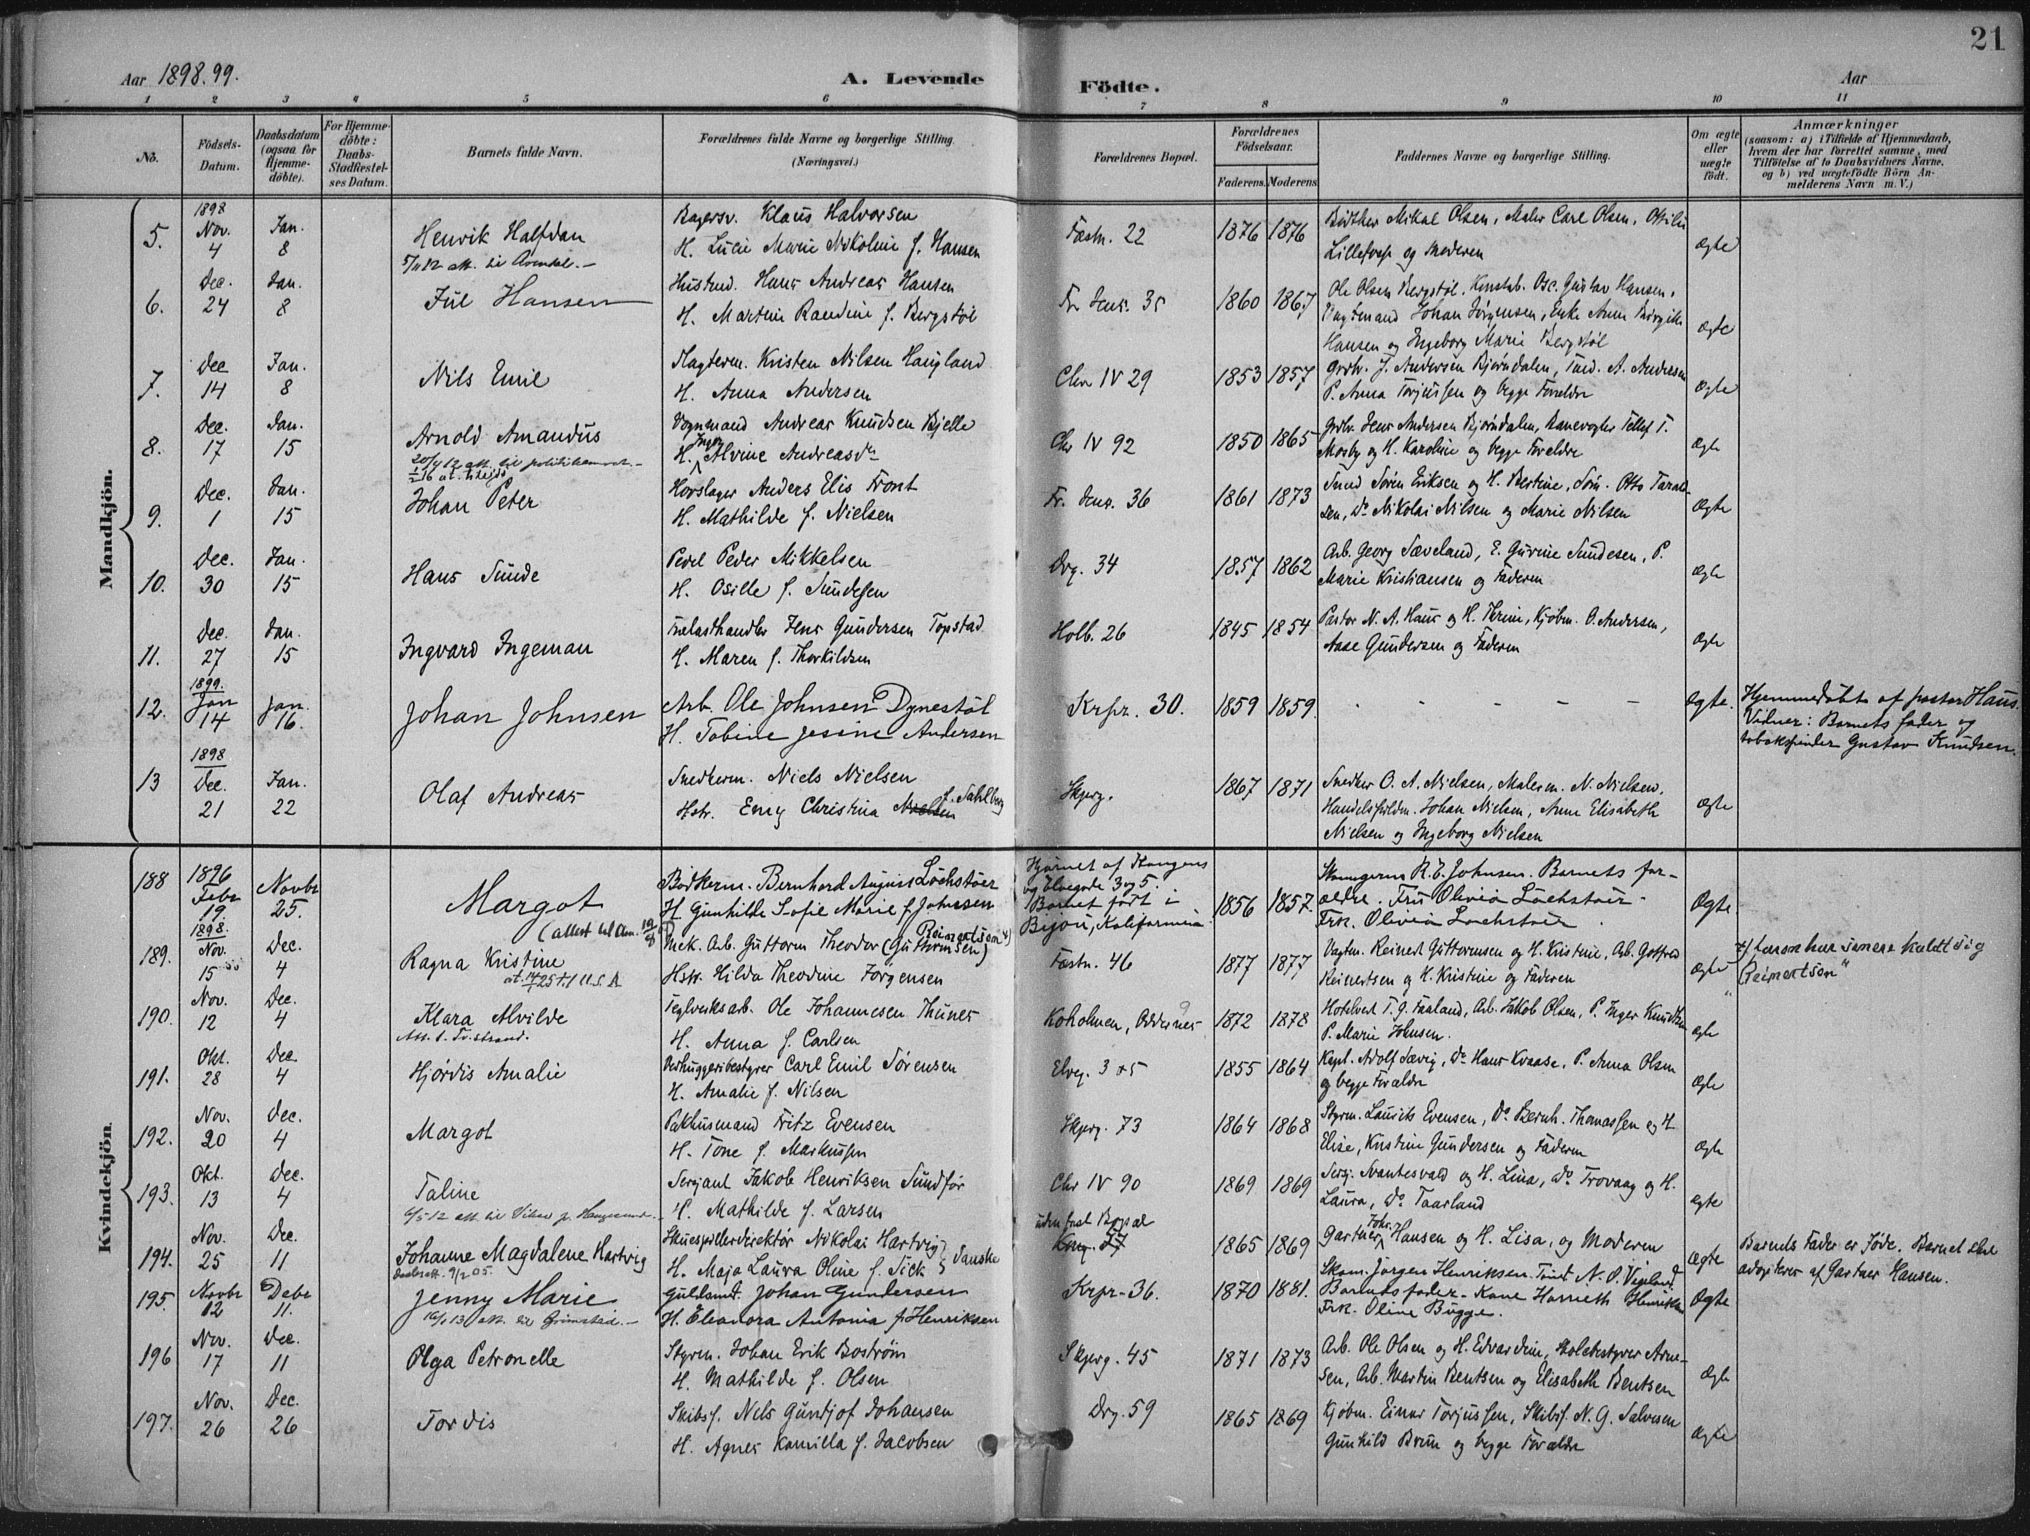 21
Aar 1898.99.
A. Levende
Födte.
Aar
1 2 3 4 5 6 7 8 9 10 11
No.
Födsels-
Datum.
Daabsdatum
(ogsaa for
Hjemme-
döbte).
For Hjemme-
döbte:
Daabs-
Stadfæstel-
ses Datum.
Barnets fulde Navn.
Forældrenes fulde Navne og borgerlige Stilling
(Næringsvei.)
Forældrenes Bopæl.
Forældrenes
Födselsaar.
Faderens. Moderens
Faddernes Navne og borgerlige Stilling.
Om ægte
eller
uægte
födt.
Anmærkninger
(saasom: a) i Tilfælde af Hjemmedaab,
hvem der har forrettet samme, med
Tilföielse af to Daabsvidners Navne,
og b) ved uægtefödte Börn An-
melderens Navn m. V.)
Mandkjön.
5. 1898 Nov. 4 Jan. 8
Henrik Halfdan
5/11 12 att. til Arendal.-
Bagersv. Klaus Halvorsen
H. Lucie Marie Nikoline f. Hansen
Fæstn. 22 1876 1876
Mikal Olsen, Maler Carl Olsen,
og Moderen
ægte
6. Dec. 24 Jan. 8
Jul Hansen
Hans Andreas Hansen
H. Martine Randine f. Bergstøl
35 1860 1867
Ole Olsen Bergstøl, Konstab. Osc. Gustav Hansen,
Vagtmand Johan Jørgensen, Enke Anne Birgitte
Hansen og Ingeborg Marie Bergstøl
ægte
7. Dec 14 Jan. 8
Nils Emil
Kristen Nilsen Haugland
H. Anna Andersen
Chr IV 29 1853 1857
J. Andersen Bjørndalen, Tind. A. Andersen
P. Anna Torjussen og begge Forældre
ægte
8. Dec. 17 Jan. 15
Arnold Amandus
Vognmand Andreas Knudsen Bjelle
H. Alvine Andreasdr
Chr IV 92 1850 1865
Jens Andersen Bjørndalen, Banevogter Tellef T.
Mosby og H. Karoline og begge Forældre
ægte
9. Dec. 1 Jan. 15
Johan Peter
Hovslager Anders Elis Front
H. Mathilde f. Nielsen
Fr. Henr. 36 1861 1873
Smed Søren Eriksen og H. Bertine, Søm. Otto Taral-
sen, Do Nikolai Nilsen og Marie Nilsen
ægte
10. Dec. 30 Jan. 15
Hans Sunde
Peder Mikkelsen
H. Osille f. Sundesen
Drg. 34 1857 1862
Arb. Georg Sæveland, E. Gurine Sundesen, P.
Marie Kristiansen og Faderen
ægte
11. Dec. 27 Jan. 15
Ingvard Ingeman
Trælasthandler Jens Gundersen Topstad
H. Maren f. Thorkildsen
Holb. 26 1845 1854
Pastor N. A. Haus og H. Thrine, Kjøbm. O. Andersen,
Aase Gundersen og Faderen
ægte
12. 1899. Jan 14 Jan. 16.
Johan Johnsen
Arb. Ole Johnsen Dynestøl
H. Tobine Jesine Andersen
Krpr. 30. 1859 1859.
ægte.
Hjemmedøbt af pastor Haus.
Vidner: Barnets fader og
tobakspinder Gustav Knudsen.
13 1898 Dec. 21 Jan. 22
Olaf Andreas
Snedkerm. Niels Nielsen
Hstr. Emy Christina f. Sahlberg
Skjerg. 1867 1871
Snedker O. A. Nielsen, Malerm. N. Nielsen,
Johan Nielsen, Anne Elisabeth
Nielsen og Ingeborg Nielsen
ægte
Kvindekjön.
188 1896 Febr 19 Novbr 25.
Margot
Bødkerm. Bernhard August Lochstøer
H. Gunhilde Sofie Marie f. Johnsen
Hjørnet af Kongens
og Elvegade 3 og 5.
Barnet født i
Bijou, Kalifornia
1856 1857.
R. E. Johnsen. Barnets for-
ældre. Fru Olivia Lochstøer.
Frk. Olivia Lochstøer.
Ægte.
189. 1898. Nov. 15 Dec. 4
Ragna Kristine
Mek. Arb. Guttorm Theodor (Guttormsen) Reinertsen x)
Hstr. Hilda Theodine Jørgensen
Fæstn. 46 1877 1877
Vagtm. Reinert Guttormsen og H. Kristine, Arb. Gotfred
Reinertsen og H. Kristine og Faderen
ægte
x) senere kaldt sig
"Reinertsen"
190. Nov. 12 Dec. 4
Klara Alvilde
Att. t. Tvedestrand.
Teglverksarb. Ole Johannesen Thunes
H. Anna f. Carlsen
Koholmen, Oddernes 1872 1878
T. G. Faaland, Arb. Jakob Olsen, P. Inger Knudsen
P. Marie Johnsen.
ægte
191. Okt. 28 Dec. 4
Hjørdis Amalie
Carl Emil Sørensen
H. Amalie f. Nilsen
Elveg. 3 & 5 1855 1864
Kapt. Adolf Sævig, Do Hans Kvaase, P. Anna Olsen
og begge Forældre
ægte
192. Nov. 20 Dec. 4
Margot
Pakhusmand Fritz Evensen
H. Tone f. Markussen
Skjerg. 73 1864 1868
Styrm. Laurits Evensen, Do Bernh. Thomassen og H.
Elise, Kristine Gundersen og Faderen
ægte
193. Okt. 13 Dec. 4
Taline
Serjant Jakob Henriksen Sundfør
H. Mathilde f. Larsen
Chr IV 90 1869 1869
Serg. Svantesvald og H. Lina, Do Trovaag og H.
Laura, Do Taarland
ægte
194. Nov. 25 Dec. 11
Johanne Magdalene Hartvig
Daabsatt. 9/2 05.
Skuespillerdirektør Nikolai Hartvig
H. Maja Laura Oline f. Fick } danske
uden fast Bopæl
1865 1869
Gartner Johs. Hansen og H. Lisa, og Moderen
ægte
Barnets Fader er Jøde. Barnet skal
adopteres af Gartner Hansen.
195. Novbr 12 Decbr 11.
Jenny Marie
16/1 13 att. til Grimstad.-
Guldsmd. Johan Gundersen
H. Eleanora Antonia f. Henriksen
Krpr. 36. 1870 1881.
Skom. Jørgen Henriksen. Tind. N. O. Vigeland
Barnets fader. Kone Harrieth Henriksen
Frk. Oline Bugge.
Ægte
196 Nov. 17 Dec. 11
Olga Petronelle
Styrm. Johan Erik Boström
H. Mathilde f. Olsen
Skjerg. 45 1871 1873
Arb. Ole Olsen og H. Edvardine, Skolebestyrer Arne-
sen, Arb. Martin Bentsen og Elisabeth Bentsen
Ægte
197. Nov. 26 Dec. 26
Tordis
Skibsf. Nils Gundjof Johansen
H. Agnes Kamilla f. Jacobsen
Drg. 59 1865 1869
Kjøbm. Einar Torjussen, Skibsf. N. G. Salvesen
Gunhild Bruun og begge Forældre
ægte